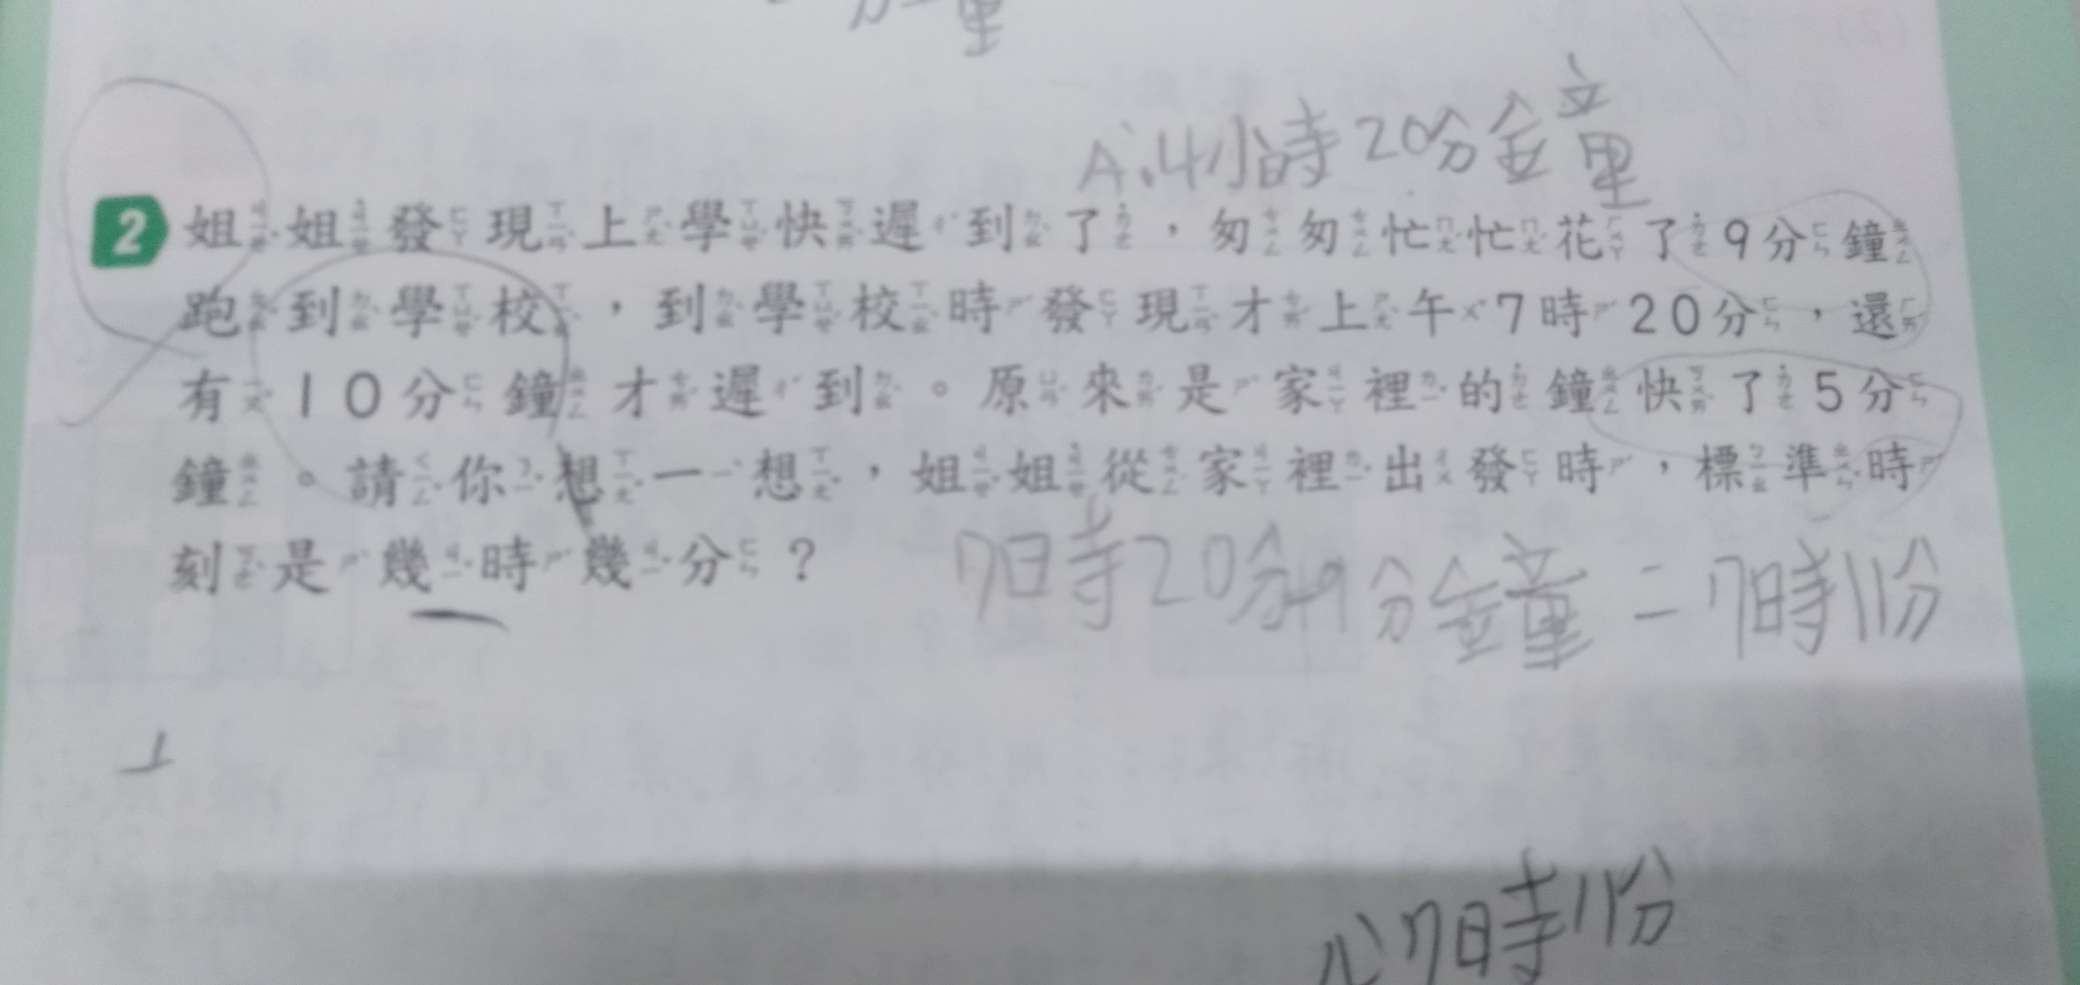 A:4小時20分鐘
2 姐姐發現上學快遲到了，匆匆忙忙花了9分鐘
跑到學校，到學校時發現才上午7時20分，還
有10分鐘才遲到。原來是家裡的鐘快了5分
鐘。請你想一想，姐姐從家裡出發時，標準時
刻是幾時幾分？
7時20分-9分鐘=7時11分
A:7時11分